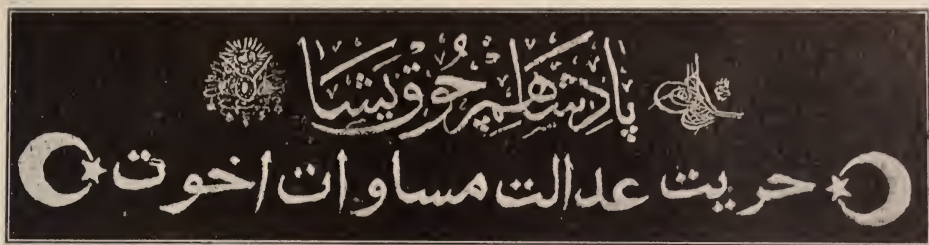 پادشاهم چوق یشا
حریت عدالت مساوات اخوت